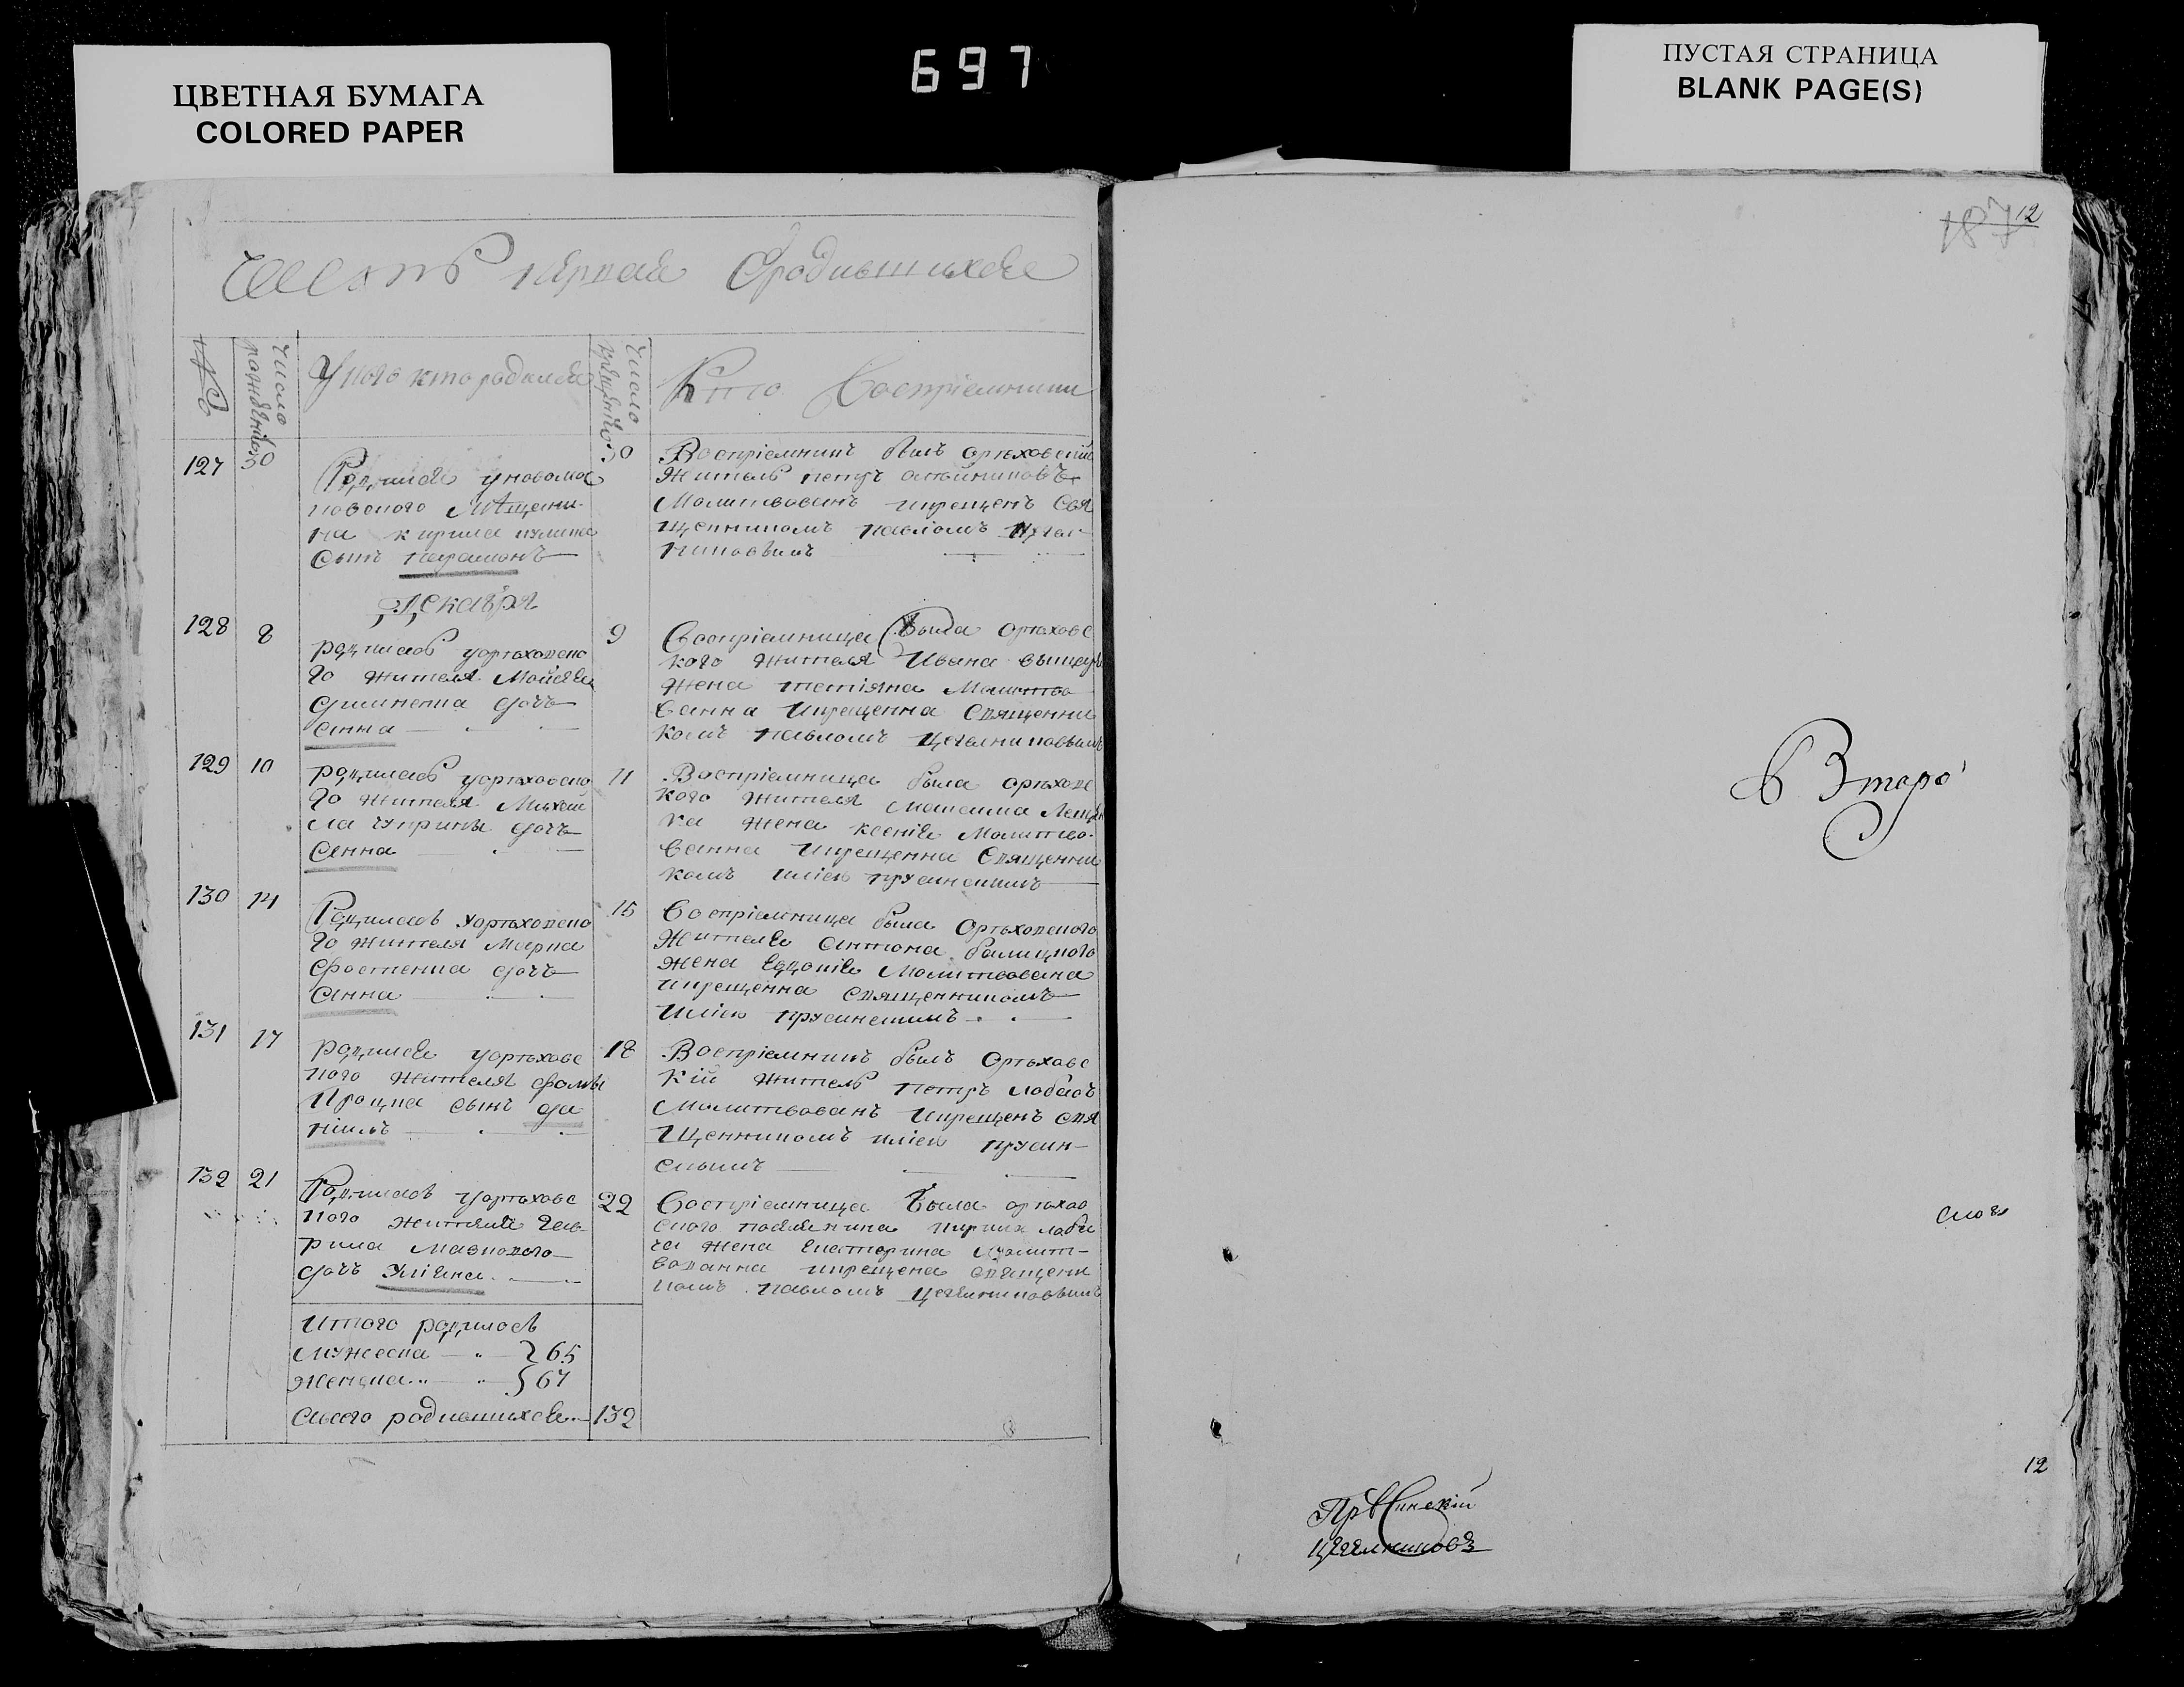 ЦВЕТНАЯ БУМАГА
COLORED PAPER
697
ПУСТАЯ СТРАНИЦА
BLANK PAGE(S)
Часть первая Ородившихся
№
Число рождения
У кого кто родился
Число крещения
Кто Воспріемники
127
30
Родился
на кирила
сынъ парамонъ
30
Воспріемникъ былъ орѣховскій
житель петръ
Молитвованъ икрещенъ Свя
щенникомъ павломъ Цегел
никовымъ
Декабря
128
8
родилась уорѣховско
го жителя Мойсея
дочъ
анна
9
Воспріемница была орѣховс
кого жителя Ивана
жена татіяна Молитво
ванна икрещенна Священни
комъ павломъ Цегелниковымъ
129
10
родилась уорѣховско
го жителя Михай
ла чуприны дочъ
Анна
11
Воспріемница была орѣховс
кого жителя максима
жена ксенія Молитво
ванна икрещенна Священни
комъ иліею прусинскимъ
130
14
Родилась уорѣховско
го жителя Марка
дочъ
Анна
15
Воспріемница была Орѣховского
жителя антона
жена Евдокія Молитвована
икрещенна священникомъ
иліею прусинскимъ
131
17
родился уорѣховс
кого жителя фомы
Процка сынъ да
ніилъ
18
Воспріемникъ былъ Орѣховс
кій житель петръ лобасъ
Молитвованъ икрещенъ свя
щенникомъ иліею прусин
скимъ
132
21
Родилась уорѣховс
кого жителя гав
рила
дочъ Уліяна
22
Воспріемница была орѣхов
ского поселянина
жена Екатерина молит
вованна икрещена священи
комъ павломъ цегелниковымъ
Итого родилось
мужеска 65
женска 67
всего родившихся 132
187
12
в Втаро
12
Прусинскій
Цегелниковъ